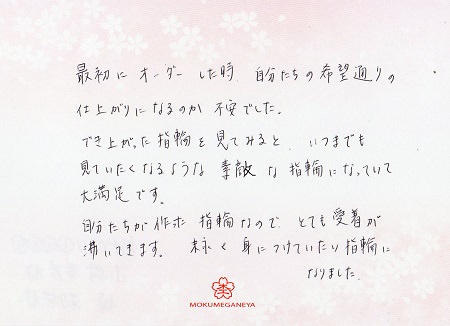 最初に オーダーした時 自分たちの希望通りの
仕上がりになるのか 不安でした。
でき上がった指輪を見てみると、いつまでも
見ていたくなるような 素敵な指輪になっていて
大満足です。
自分たちが作った 指輪なので、とても愛着が
沸いてきます。 末永く 身につけていたい指輪に
なりました。
MOKUMEGANEYA